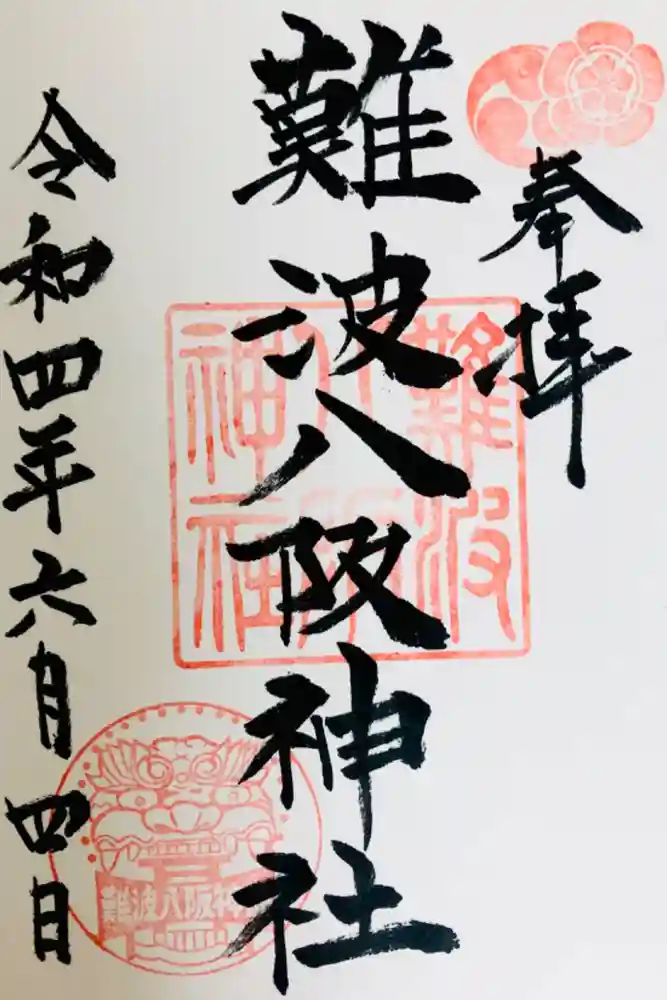 奉拝
難波八阪神社
令和四年六月四日
難波八阪神社
難波八阪神